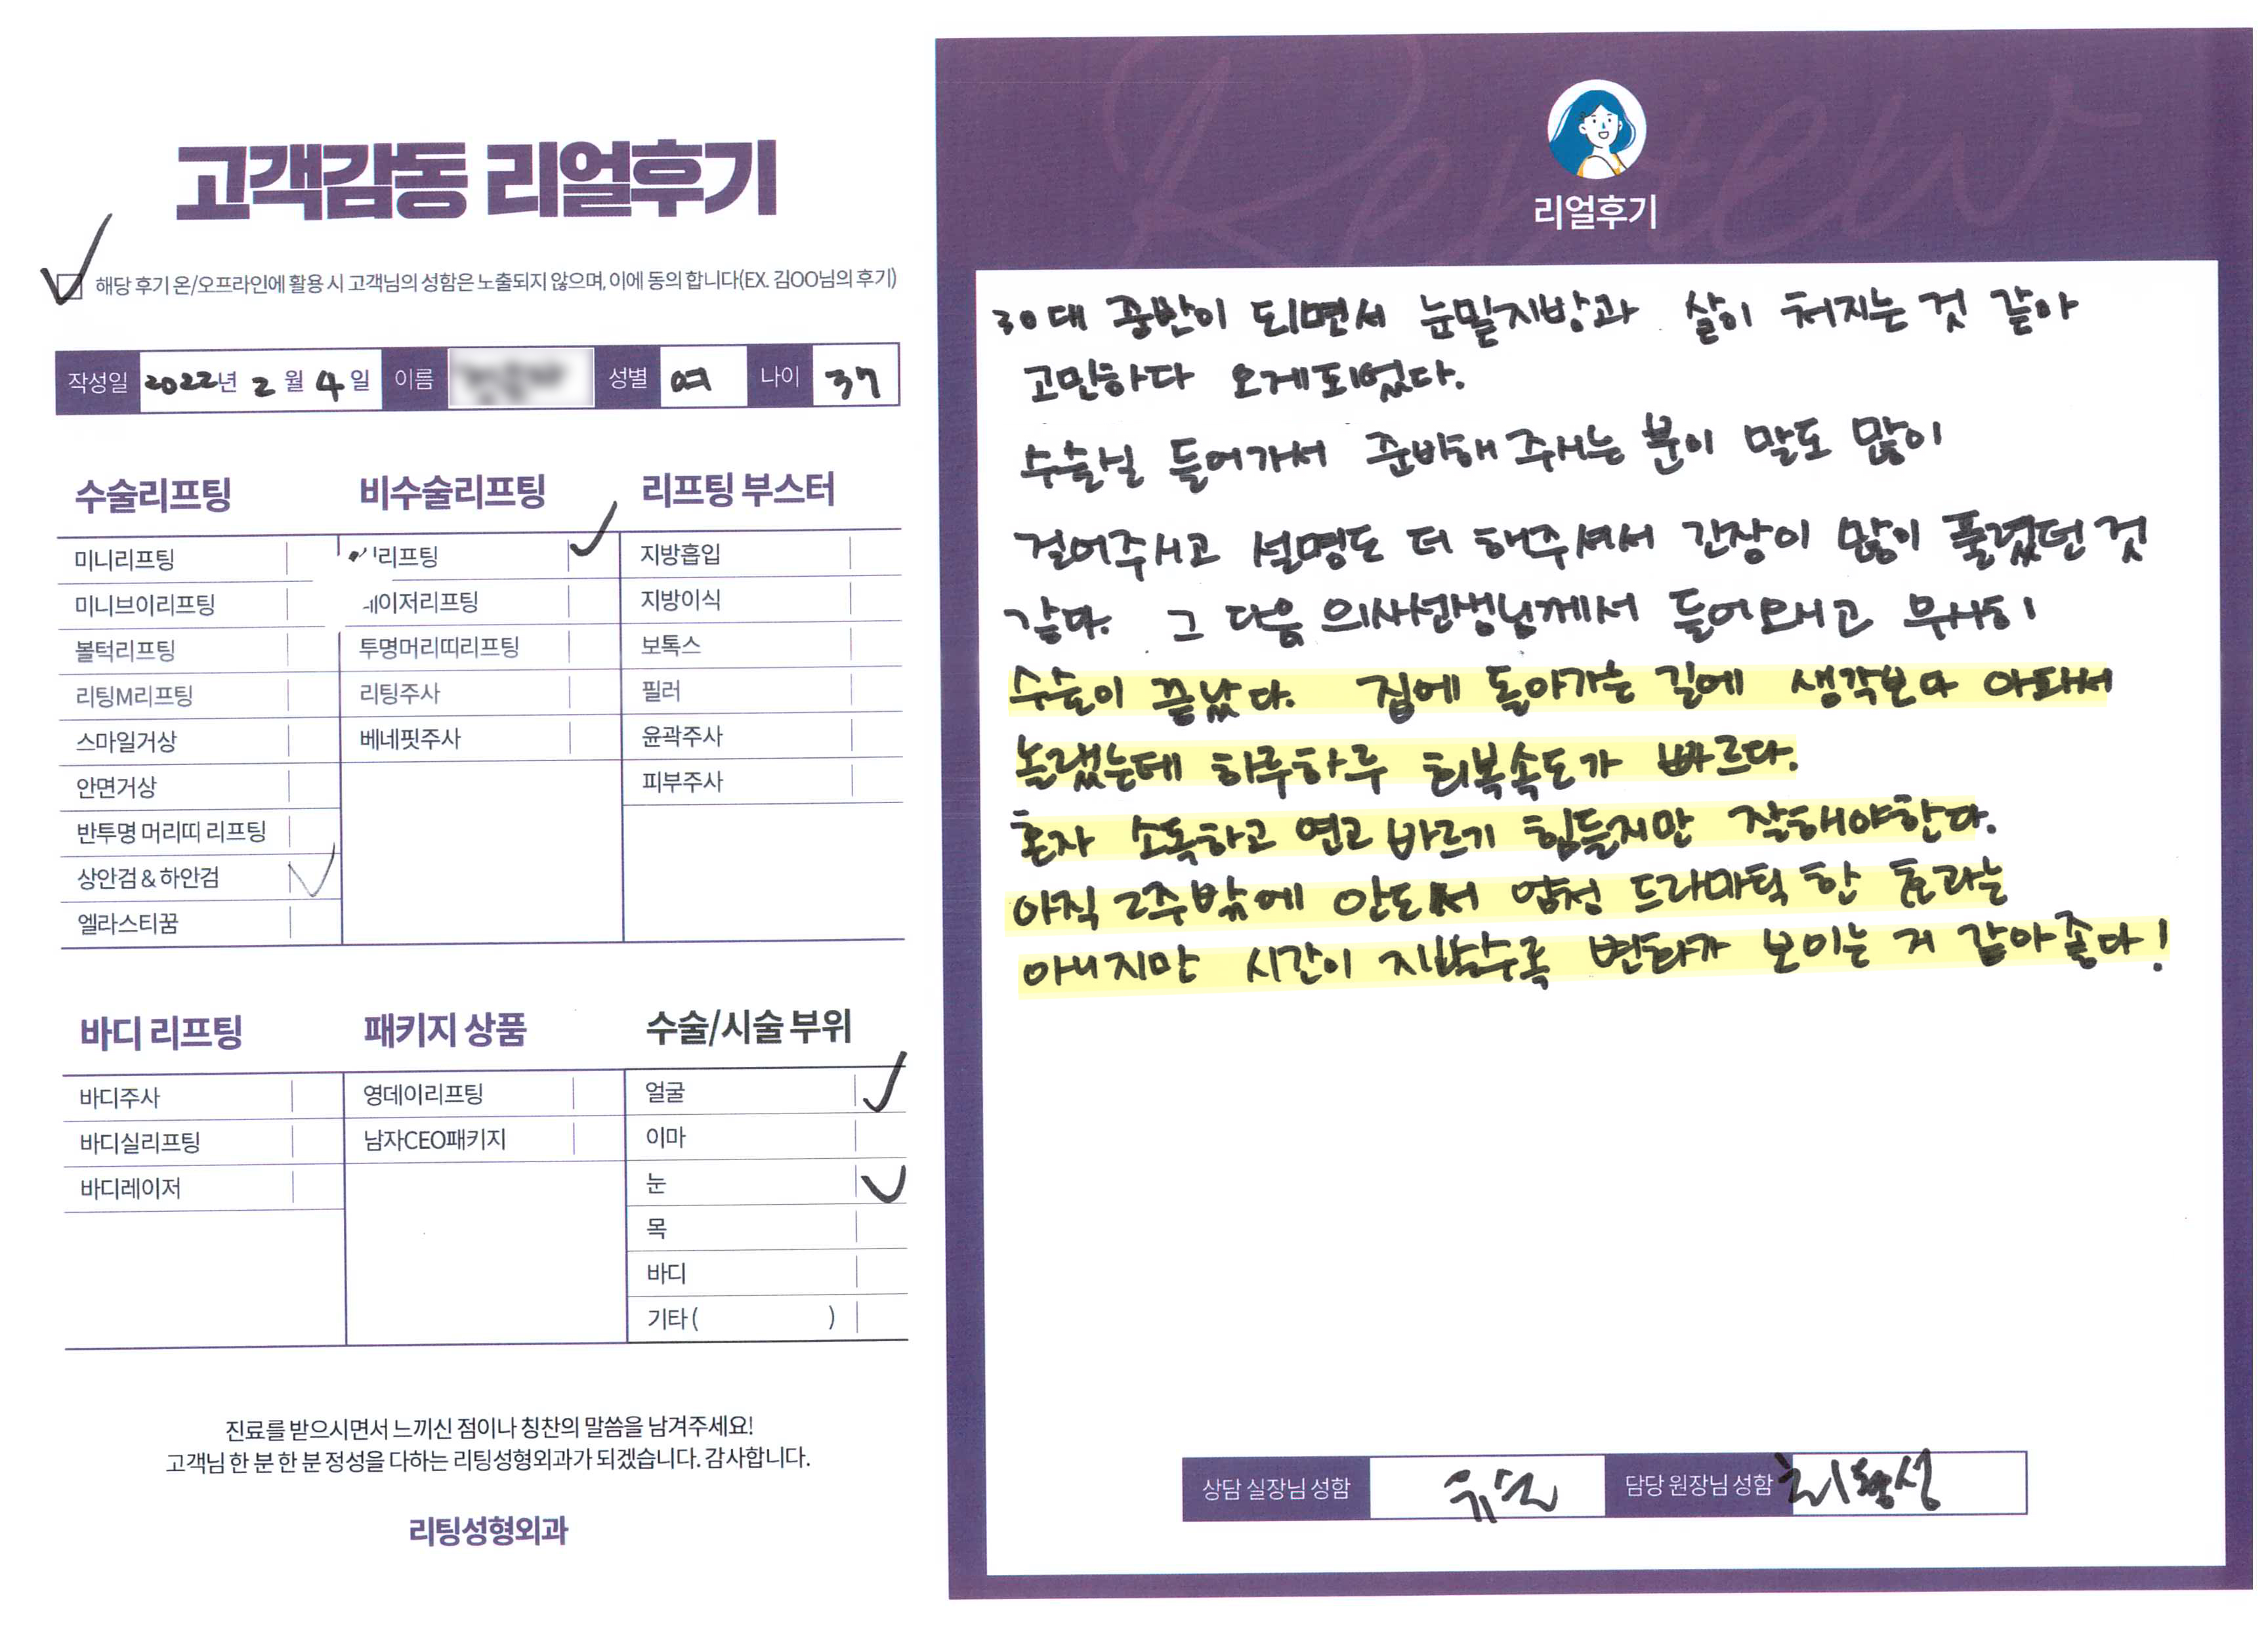 고객감동 리얼후기
해당 후기 온/오프라인에 활용 시 고객님의 성함은 노출되지 않으며, 이에 동의 합니다(EX. 김OO님의 후기)
작성일 2022년 2월 4일 이름 성별 여 나이 37
수술리프팅
미니리프팅
미니브이리프팅
볼턱리프팅
리팅M리프팅
스마일거상
안면거상
반투명 머리띠 리프팅
상안검 & 하안검
엘라스티꿈
비수술리프팅
리프팅
이저리프팅
투명머리띠리프팅
리팅주사
베네핏주사
리프팅 부스터
지방흡입
지방이식
보톡스
필러
윤곽주사
피부주사
바디 리프팅
바디주사
바디실리프팅
바디레이저
패키지 상품
영데이리프팅
남자CEO패키지
수술/시술 부위
얼굴
이마
눈
목
바디
기타 ( )
진료를 받으시면서 느끼신 점이나 칭찬의 말씀을 남겨주세요!
고객님 한 분 한 분 정성을 다하는 리팅성형외과가 되겠습니다. 감사합니다.
리팅성형외과
Review
리얼후기
30대 중반이 되면서 눈밑지방과 살이 처지는 것 같아
고민하다 오게되었다.
수술실 들어가서 준비해 주시는 분이 말도 많이
걸어주시고 설명도 더 해주셔서 긴장이 많이 풀렸던 것
같다. 그 다음 의사선생님께서 들어오시고 무사히
수술이 끝났다. 집에 돌아가는 길에 생각보다 아파서
놀랬는데 하루하루 회복속도가 빠르다.
혼자 소독하고 연고 바르기 힘들지만 잘해야한다.
아직 2주밖에 안돼서 엄청 드라마틱 한 효과는
아니지만 시간이 지날수록 변화가 보이는 거 같아좋다!
상담 실장님 성함
담당 원장님 성함